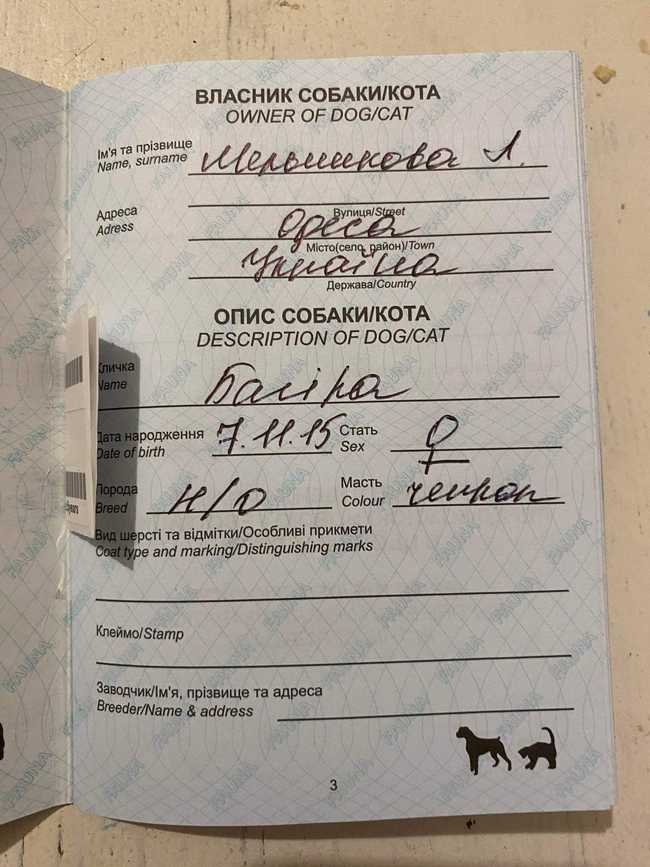 ВЛАСНИК СОБАКИ/КОТА
OWNER OF DOG/CAT
Ім'я та прізвище Мельникова Л.
Name, surname
Адреса
Adress
Вулиця/Street
Одеса
Місто(село, район)/Town
Україна
Держава/Country
ОПИС СОБАКИ/КОТА
DESCRIPTION OF DOG/CAT
Кличка Багіра
Name
Дата народження 7.11.15 Стать ♀
Date of birth Sex
Порода н/о Масть
Breed Colour
Вид шерсті та відмітки/Особливі прикмети
Coat type and marking/Distinguishing marks
Клеймо/Stamp
Заводчик/Ім'я, прізвище та адреса
Breeder/Name & address
3
FAUNA